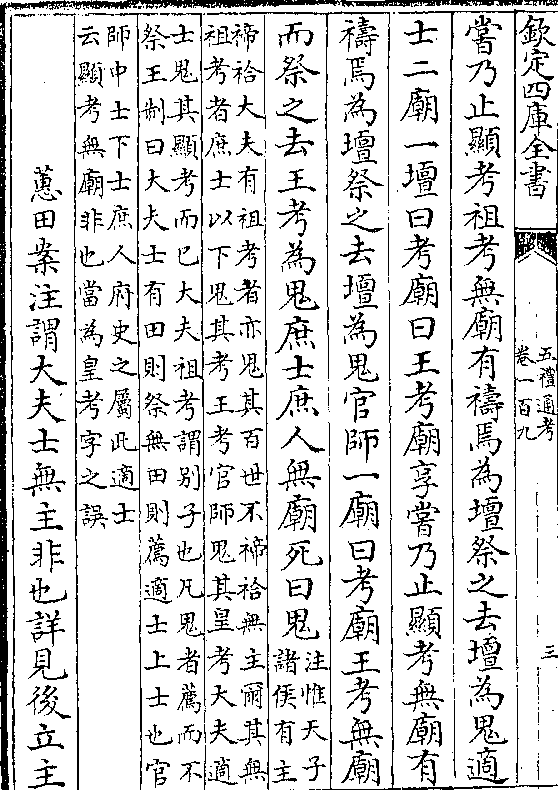 欽定四庫全書
五禮通考
卷一百九
三
嘗乃止顯考祖考無廟有禱焉為壇祭之去壇為鬼適
士二廟一壇曰考廟曰王考廟享嘗乃止顯考無廟有
禱焉為壇祭之去壇為鬼官師一廟曰考廟王考無廟
而祭之去王考為鬼庶士庶人無廟死曰鬼
注惟天子
諸侯有主
禘祫大夫有祖考者亦鬼其百世不禘祫無主爾其無
祖考者庶士以下鬼其考王考官師鬼其皇考大夫適
士鬼其顯考而已大夫祖考謂别子也凡鬼者薦而不
祭王制曰大夫士有田則祭無田則薦適士上士也官
師中士下士庶人府史之屬此適士
云顯考無廟非也當為皇考字之誤
蕙田案注謂大夫士無主非也詳見後立主